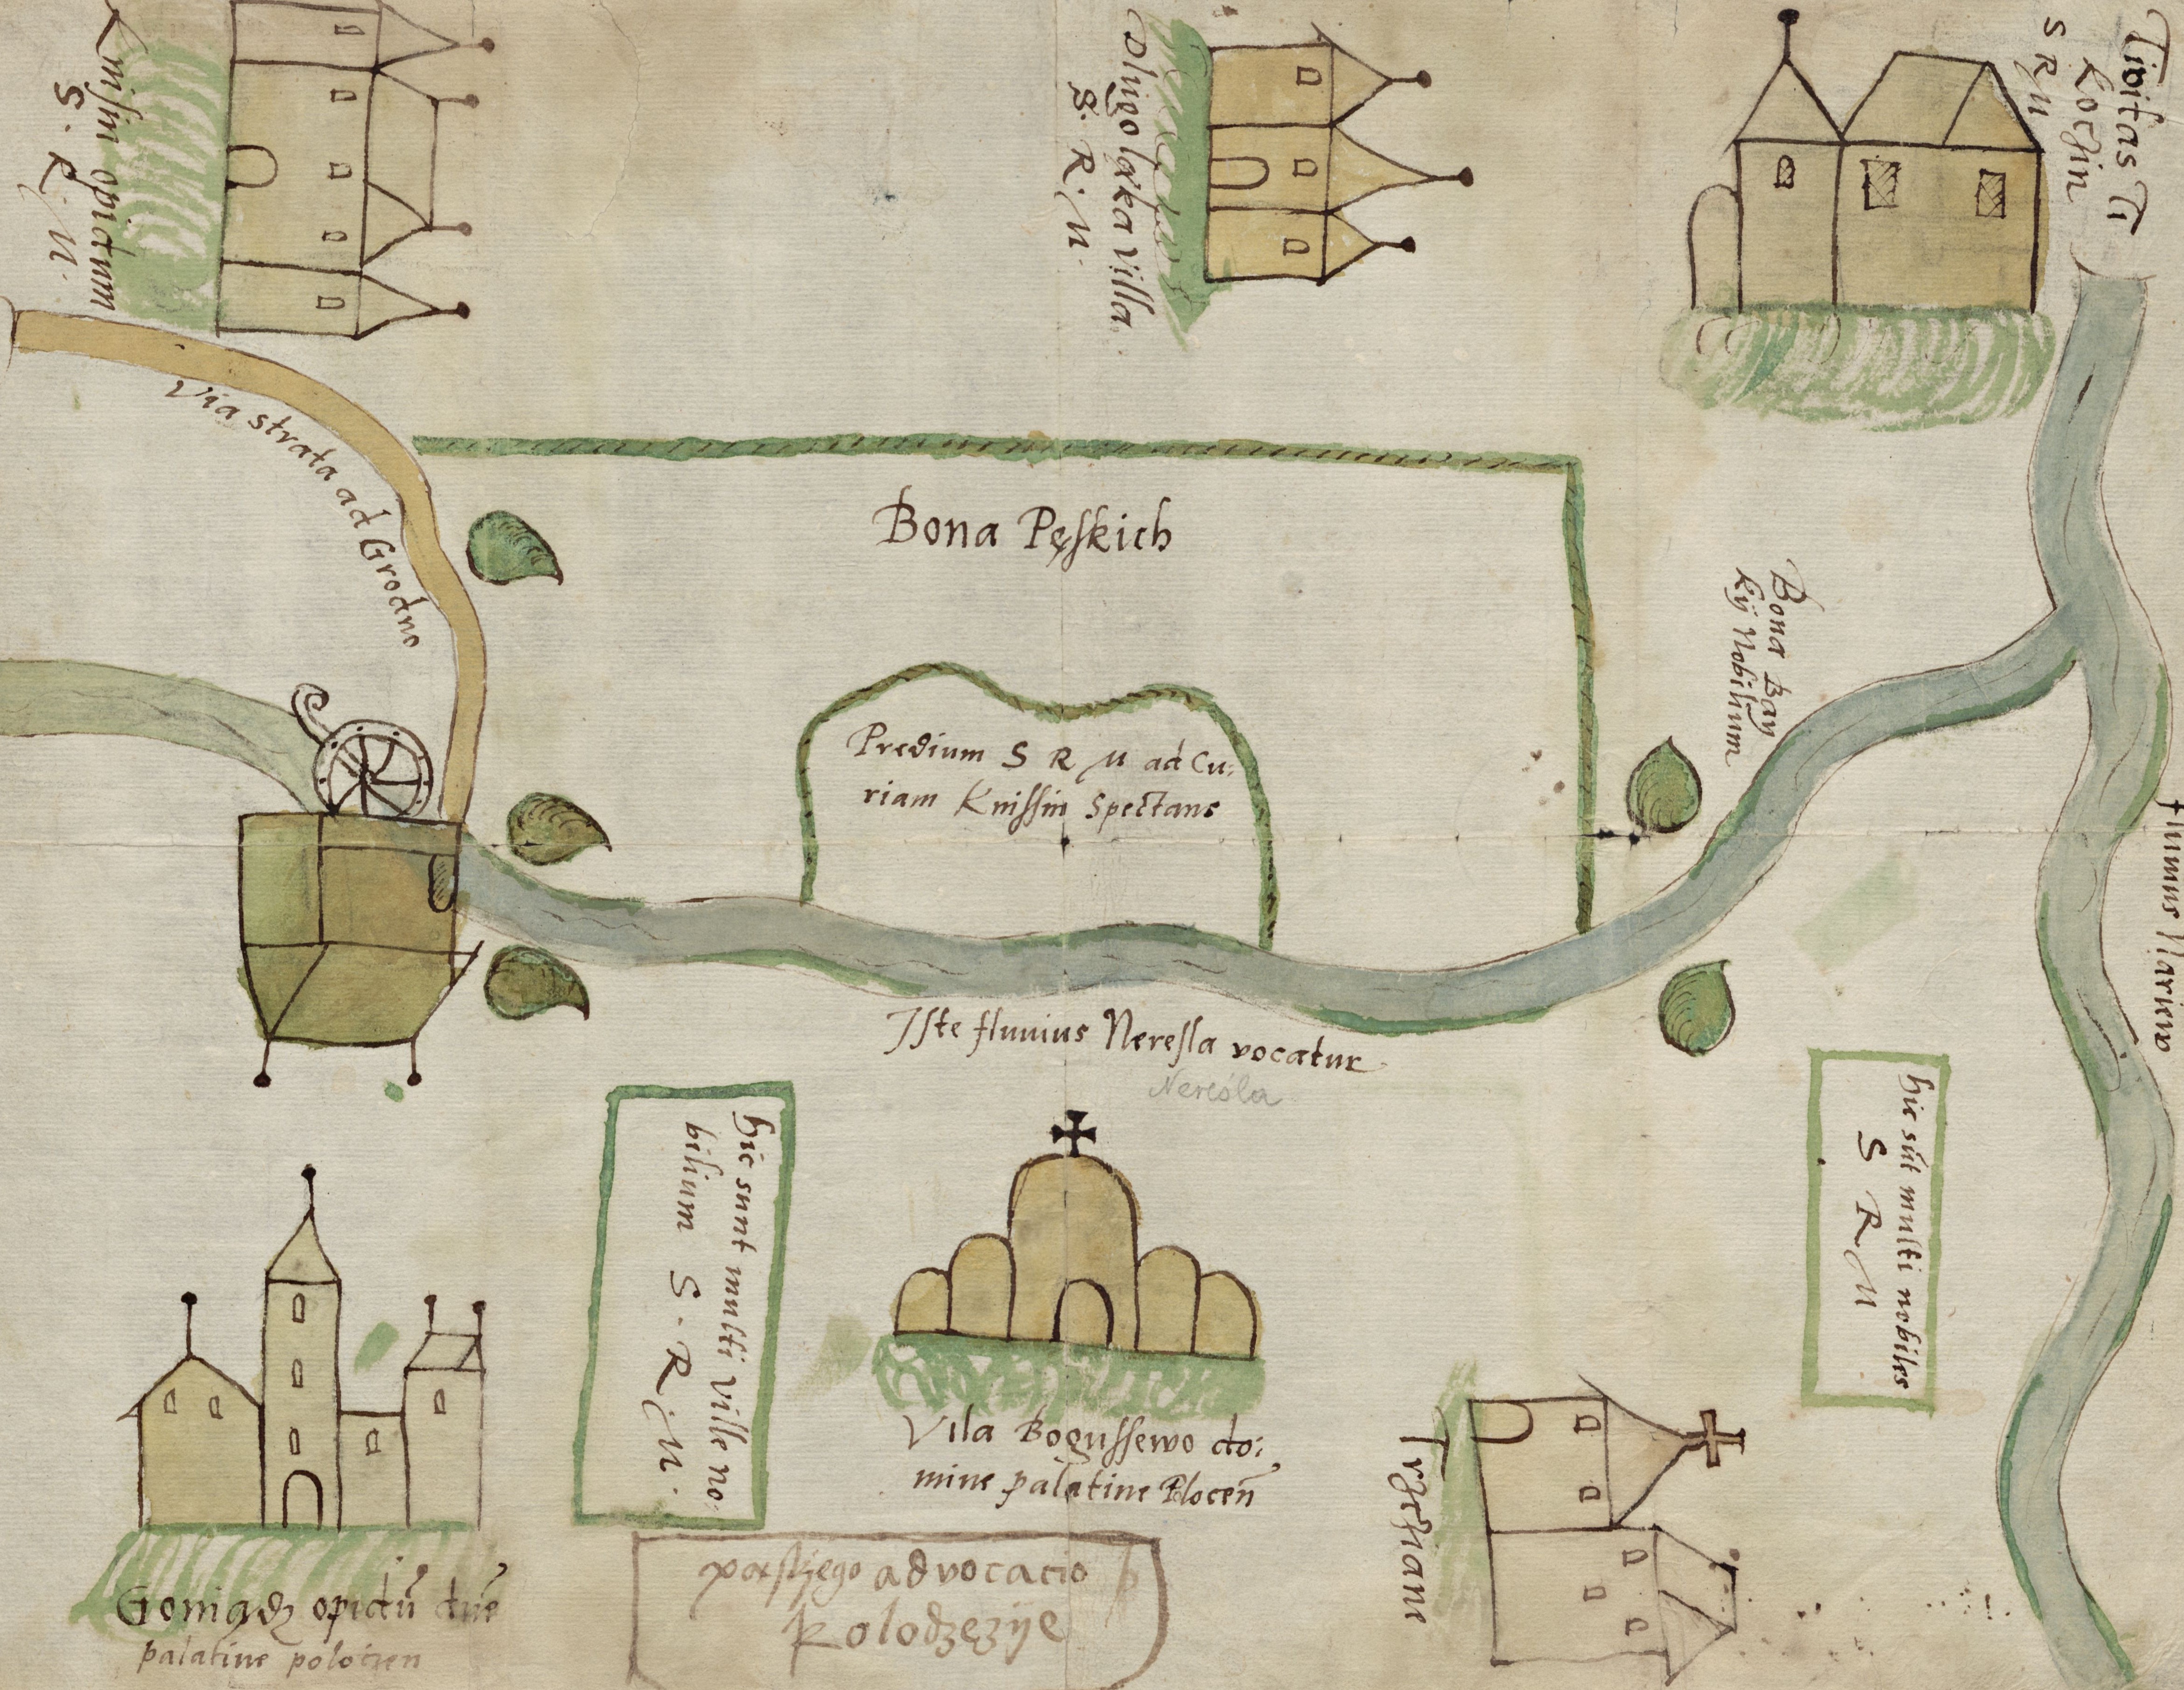 Knisin opidum
S. R. M.
Dlugolaka villa
S. R. M.
Civitas Ti
koczin
S R M
Via strata ad Grodno
Bona Pęskich
Bona Bay
kÿ Nobilium
Predium S R M ad Cu:
riam Knissin Spectans
fluvius Nariew
Iste fluuius Neresla vocatur
Neresla
hic sunt multi ville no
bilium S. R. M.
hic sūt multi nobiles
S R M
Vila Bogussewo do:
mine palatine Plocen̄
Trzcziane
Goniądz opidū dn̄e
palatine polocien
advocacio
kolodzęzÿe